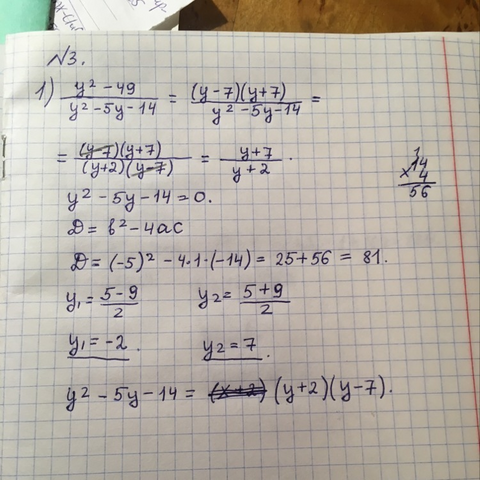 №3.
1) (y² - 49)/(y² - 5y - 14) = ((y-7)(y+7))/(y² - 5y - 14) =
= ((y-7)(y+7))/((y+2)(y-7)) = (y+7)/(y+2).
14
× 4
56
y² - 5y - 14 = 0.
D = b² - 4ac
D = (-5)² - 4·1·(-14) = 25 + 56 = 81.
y₁ = (5-9)/2 y₂ = (5+9)/2
y₁ = -2. y₂ = 7.
y² - 5y - 14 = (x+2) (y+2)(y-7).